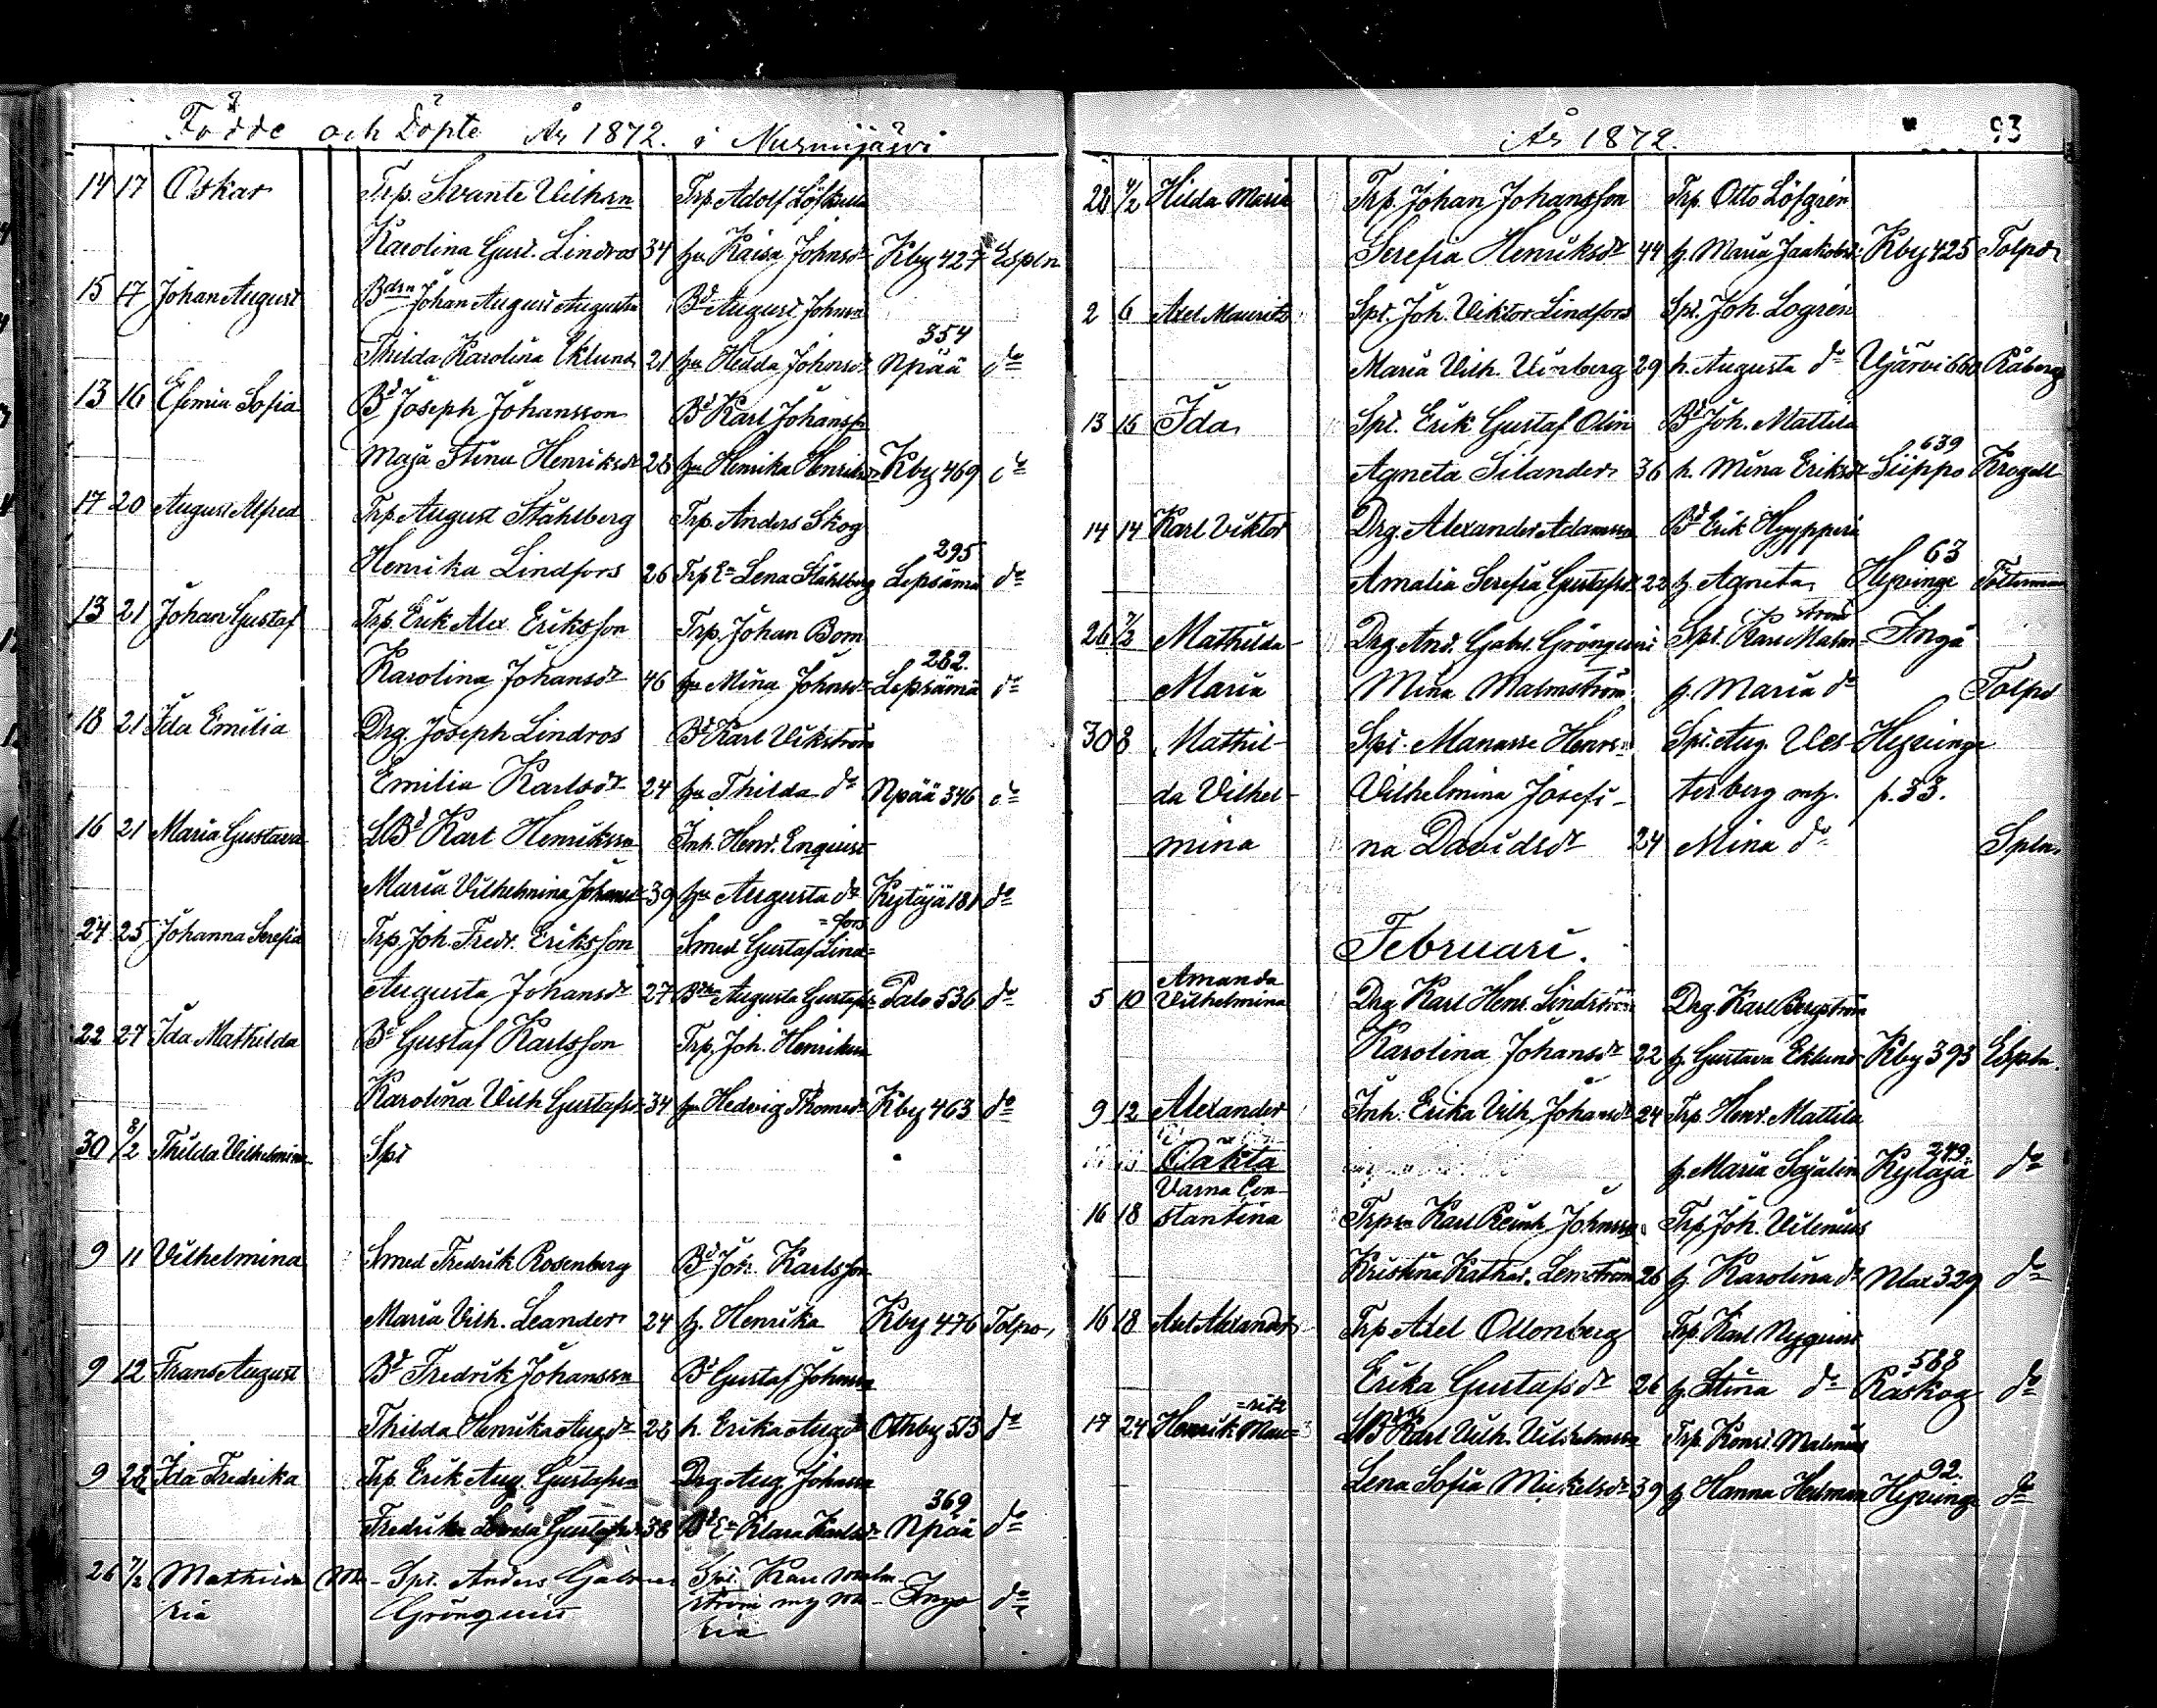 Födde och Döpte År 1872. i Nurmijärvi
14 17 Oskar Trp. Svante Vilhsn Trp. Adolf Löfkvist
Karolina Gust. Lindros 34 hu Kaisa Johnsdr Kby 427 Espln
15 17 Johan August Bdsn Johan August Augustsn Bd August Johnsn
354
Thilda Karolina Eklund 21 hu Hedda Johnsdr Npää do
13 16 Efemia Sofia Bd Joseph Johansson Bd Karl Johanss
Maja Stina Henriksdr 28 hu Henrika Henriksdr Kby 469 do
17 20 August Alfred Trp. August Ståhlberg Trp. Anders Skog
295
Henrika Lindfors 26 Trp. En Lena Ståhlberg Lepsämä do
13 21 Johan Gustaf Trp. Erik Alex. Eriksson Trp. Johan Bom
282.
Karolina Johansdr 46 hu Mina Johnsdr Lepsämä do
18 21 Ida Emilia Drg. Joseph Lindros Bd Karl Vikström
Emilia Karlsdr 24 hu Thilda do Npää 346 do
16 21 Maria Gustava LBd Karl Henrikssn Inh. Henr. Enqvist
Maria Vilhelmina Johansdr 39 hu Augusta do Kytäjä 181 do
=fors
24 25 Johanna Serefia Trp. Joh. Fredr. Eriksson Smed Gustaf Lind=
Augusta Johansdr 27 Augusta Gustafsdr Palo 536 do
22 27 Ida Mathilda Bd Gustaf Karlsson Trp. Joh. Henriksn
Karolina Vilh Gustafsdr 34 hu Hedvig Thomasdr Kby 463 do
30 8/2 Thilda Vilhelmina Spi
9 11 Vilhelmina Smed Fredrik Rosenberg Bd Joh. Karlsson
Maria Vilh. Leander 24 h. Henrika Kby 476 Tolpo
9 12 Frans August Bd Fredrik Johanssn Bd Gustaf Johnssn
Thilda Henrika Augdr 28 h. Erika Augdr Othby 513 do
9 28 Ida Fredrika Trp. Erik Aug. Gustafssn Drg. Aug. Johanssn
369
Fredrika Lovisa Gustafsdr 38 Bd En Klara Karlsdr Npää do
26 7/2 Mathilda Ma- Spi. Anders Gabriel Spi. Karl Malm-
ria Grönqvist ström m h Ma- Ingo do
ria
År 1872. 93
28 4/2 Hilda Maria Trp. Johan Johansson Trp. Otto Löfgren
Serefia Henriksdr 44 h. Maria Jaakobsdr Kby 425 Tolpo
2 6 Axel Mauritz Spi. Joh. Viktor Lindfors Spi. Joh. Logren
Maria Vilh. Vinberg 29 h. Augusta do Ujärvi 660 Råberg
13 15 Ida Spi. Erik Gustaf Olin Bd Joh. Mattila
639
Agneta Silander 36 h. Mina Eriksdr Siippo Krogell
14 14 Karl Viktor Drg. Alexander Adamssn Bd Erik Hyyppyrä
63
Amalia Serefia Gustafsdr 22 h. Agneta Hyvinge
ström
26 7/2 Mathilda Drg. And. Gabr. Grönqvist Spi. Karl Malm- Ingå
Maria Mina Malmström h. Maria do Tolpo
30 8 Mathil- Spi. Manasse Henrs. Spi. Aug. Ves- Hyvinge
da Vilhel- Vilhelmina Josefi- terberg m h. p. 33.
mina na Davidsdr 24 Mina do Spln.
Februari.
Amanda
5 10 Vilhelmina Drg Karl Henr. Lindström Drg. Karl Bergström
Karolina Johansdr 22 h. Gustava Eklund Kby 393 Espln.
9 12 Alexander Inh. Erika Vilh. Johansdr 24 Trp. Henr. Mattila
249
Oäkta h. Maria Sjalin Kytäjä do
Varna Con-
16 18 stantina Trpsn Karl Reinh. Johnssn Trp. Joh. Vilenius
Kristina Kathar. Lenström 26 h. Karolina do Nlax 329 do
16 18 Axel Alexander Trp. Axel Ollonberg Trp. Karl Nyqvist
588
Erika Gustafsdr 26 h. Stina do Råskog do
=ritz
17 24 Henrik Mau= Karl Vilh. Vilhelmssn Trp. Konst. Malenius
92.
Lena Sofia Mickelsdr 39 h. Hanna Hedman Hyvinge do